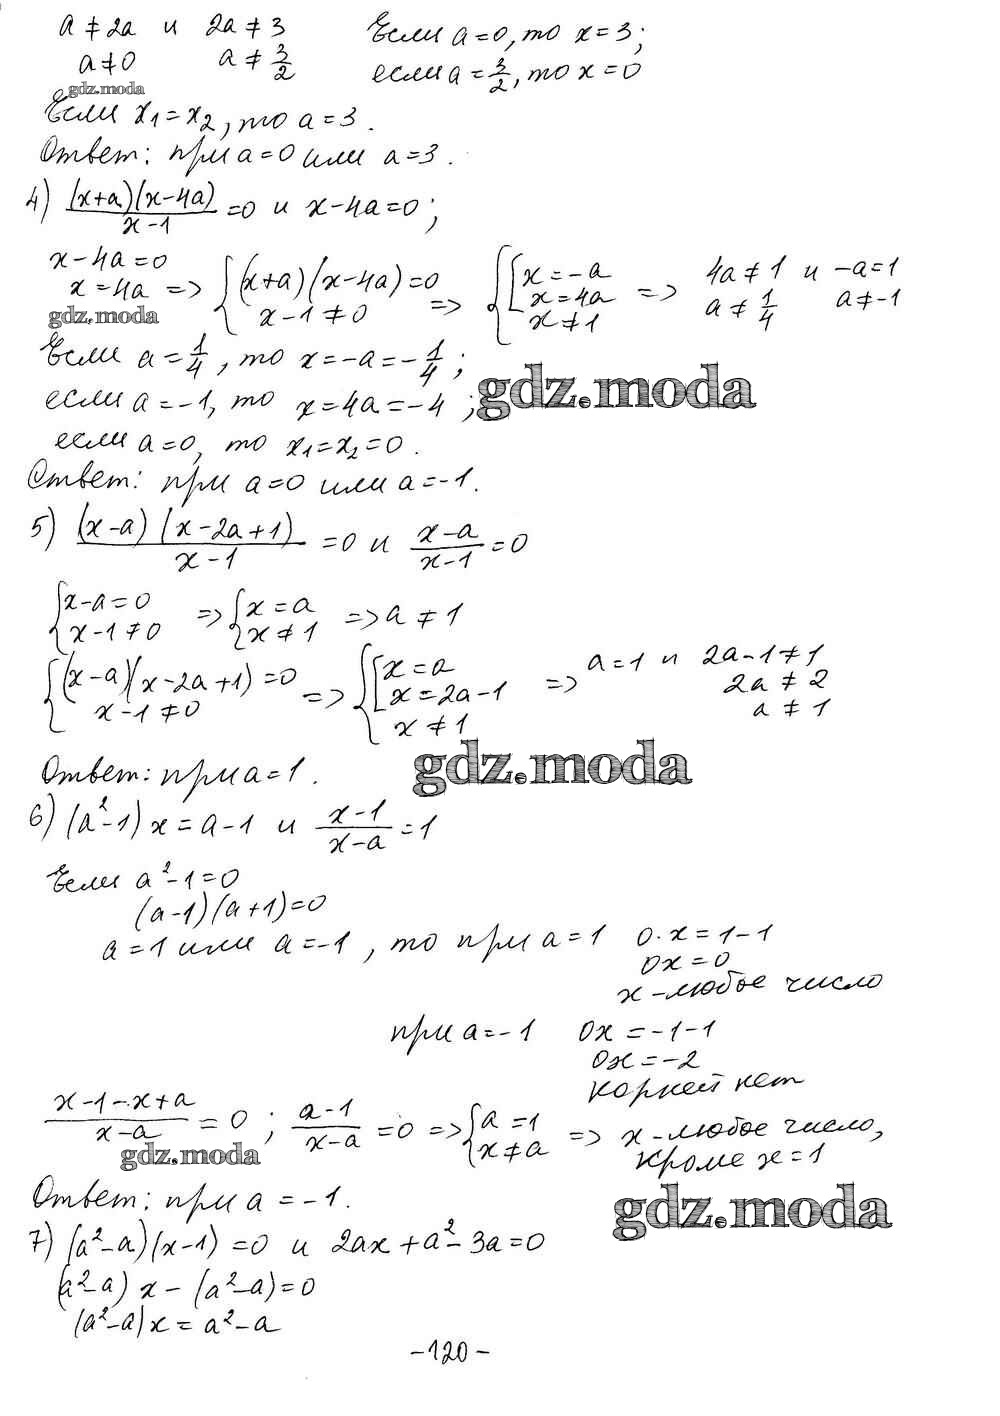 a ≠ 2a и 2a ≠ 3 Если a = 0, то x = 3;
a ≠ 0 a ≠ 3/2 если a = 3/2, то x = 0
gdz.moda
Если x₁ = x₂, то a = 3.
Ответ: при a = 0 или a = 3.
4) (x+a)(x-4a)/(x-1) = 0 и x-4a = 0;
x-4a = 0
x = 4a => { (x+a)(x-4a) = 0; x-1 ≠ 0 => { [ x = -a; x = 4a; x ≠ 1 => 4a ≠ 1 и -a = 1
a ≠ 1/4 a ≠ -1
gdz.moda
Если a = 1/4, то x = -a = -1/4;
если a = -1, то x = 4a = -4;
gdz.moda
если a = 0, то x₁ = x₂ = 0.
Ответ: при a = 0 или a = -1.
5) (x-a)(x-2a+1)/(x-1) = 0 и (x-a)/(x-1) = 0
{ x-a = 0; x-1 ≠ 0 => { x = a; x ≠ 1 => a ≠ 1
{ (x-a)(x-2a+1) = 0; x-1 ≠ 0 => { [ x = a; x = 2a-1; x ≠ 1 => a = 1 и 2a-1 ≠ 1
2a ≠ 2
a ≠ 1
Ответ: при a = 1.
gdz.moda
6) (a²-1)x = a-1 и (x-1)/(x-a) = 1
Если a²-1 = 0
(a-1)(a+1) = 0
a = 1 или a = -1, то при a = 1 0·x = 1-1
0x = 0
x - любое число
при a = -1 0x = -1-1
0x = -2
корней нет
(x-1-x+a)/(x-a) = 0; (a-1)/(x-a) = 0 => { a = 1; x ≠ a => x - любое число,
кроме x = 1
gdz.moda
Ответ: при a = -1.
gdz.moda
7) (a²-a)(x-1) = 0 и 2ax+a²-3a = 0
(a²-a)x-(a²-a) = 0
(a²-a)x = a²-a
-120-